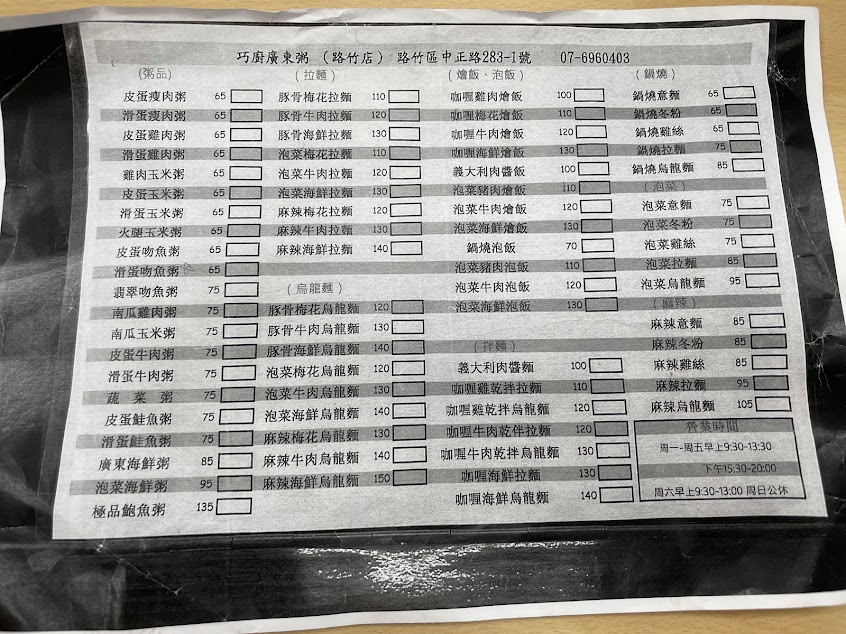 巧廚廣東粥 (路竹店) 路竹區中正路283-1號 07-6960403
(粥品)
皮蛋瘦肉粥 65
滑蛋瘦肉粥 65
皮蛋雞肉粥 65
滑蛋雞肉粥 65
雞肉玉米粥 65
皮蛋玉米粥 65
滑蛋玉米粥 65
火腿玉米粥 65
皮蛋吻魚粥 65
滑蛋吻魚粥 65
翡翠吻魚粥 75
南瓜雞肉粥 75
南瓜玉米粥 75
皮蛋牛肉粥 75
滑蛋牛肉粥 75
蔬菜粥 75
皮蛋鮭魚粥 75
滑蛋鮭魚粥 75
廣東海鮮粥 85
泡菜海鮮粥 95
極品鮑魚粥 135
(拉麵)
豚骨梅花拉麵 110
豚骨牛肉拉麵 120
豚骨海鮮拉麵 130
泡菜梅花拉麵 110
泡菜牛肉拉麵 120
泡菜海鮮拉麵 130
麻辣梅花拉麵 120
麻辣牛肉拉麵 130
麻辣海鮮拉麵 140
(烏龍麵)
豚骨梅花烏龍麵 120
豚骨牛肉烏龍麵 130
豚骨海鮮烏龍麵 140
泡菜梅花烏龍麵 120
泡菜牛肉烏龍麵 130
泡菜海鮮烏龍麵 140
麻辣梅花烏龍麵 130
麻辣牛肉烏龍麵 140
麻辣海鮮烏龍麵 150
(燴飯、泡飯)
咖喱雞肉燴飯 100
咖喱梅花燴飯 110
咖喱牛肉燴飯 120
咖喱海鮮燴飯 130
義大利肉醬飯 100
泡菜豬肉燴飯 110
泡菜牛肉燴飯 120
泡菜海鮮燴飯 130
鍋燒泡飯 70
泡菜豬肉泡飯 110
泡菜牛肉泡飯 120
泡菜海鮮泡飯 130
(拌麵)
義大利肉醬麵 100
咖喱雞乾拌拉麵 110
咖喱雞乾拌烏龍麵 120
咖喱牛肉乾伴拉麵 120
咖喱牛肉乾拌烏龍麵 130
咖喱海鮮拉麵 130
咖喱海鮮烏龍麵 140
(鍋燒)
鍋燒意麵 65
鍋燒冬粉 65
鍋燒雞絲 65
鍋燒拉麵 75
鍋燒烏龍麵 85
(泡菜)
泡菜意麵 75
泡菜冬粉 75
泡菜雞絲 75
泡菜拉麵 85
泡菜烏龍麵 95
(麻辣)
麻辣意麵 85
麻辣冬粉 85
麻辣雞絲 85
麻辣拉麵 95
麻辣烏龍麵 105
營業時間
周一-周五早上9:30-13:30
下午15:30-20:00
周六早上9:30-13:00 周日公休